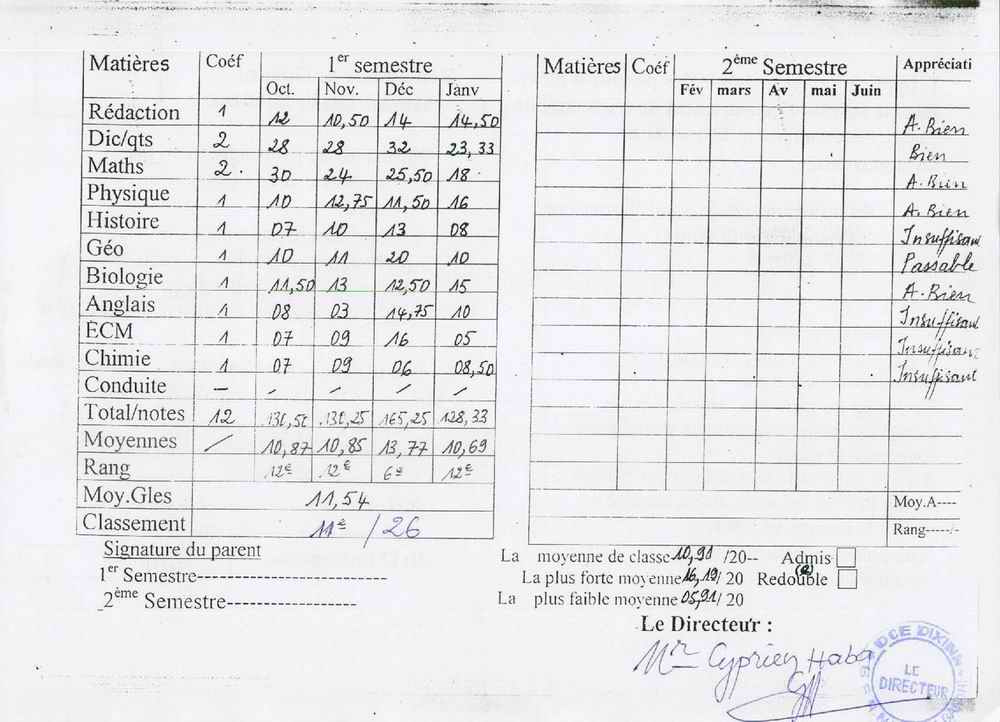 Matières Coéf 1er semestre
Oct. Nov. Déc Janv
Rédaction 1 12 10,50 14 14,50
Dic/qts 2 28 28 32 23,33
Maths 2. 30 24 25,50 18
Physique 1 10 12,75 11,50 16
Histoire 1 07 10 13 08
Géo 1 10 11 20 10
Biologie 1 11,50 13 12,50 15
Anglais 1 08 03 14,75 10
ECM 1 07 09 16 05
Chimie 1 07 09 06 08,50
Conduite –
Total/notes 12 130,50 130,25 165,25 128,33
Moyennes / 10,87 10,85 13,77 10,69
Rang 12e 12e 6e 12e
Moy.Gles 11,54
Classement 11e /26
Signature du parent
1er Semestre-----------------------
2ème Semestre----------------
Matières Coéf 2ème Semestre Appréciati
Fév mars Av mai Juin
A.Bien
Bien
A.Bien
A.Bien
Insuffisant
Passable
A.Bien
Insuffisant
Insuffisant
Insuffisant
Moy.A----
Rang-----/-
La moyenne de classe 10,91 /20-- Admis
La plus forte moyenne 16,19/ 20 Redouble
La plus faible moyenne 05,91/ 20
Le Directeur :
Mr Cyprien Haba
DCE DIXINN
LE
DIRECTEUR